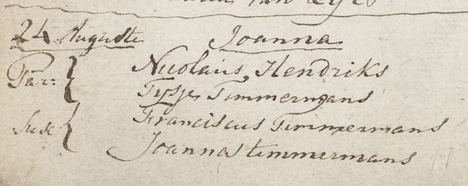 van Eyes
24 Augusti Joanna
Par: Nicolaus, Hendriks
Tysje Timmermans
Susc Franciscus Timmermans
Joanna timmermans